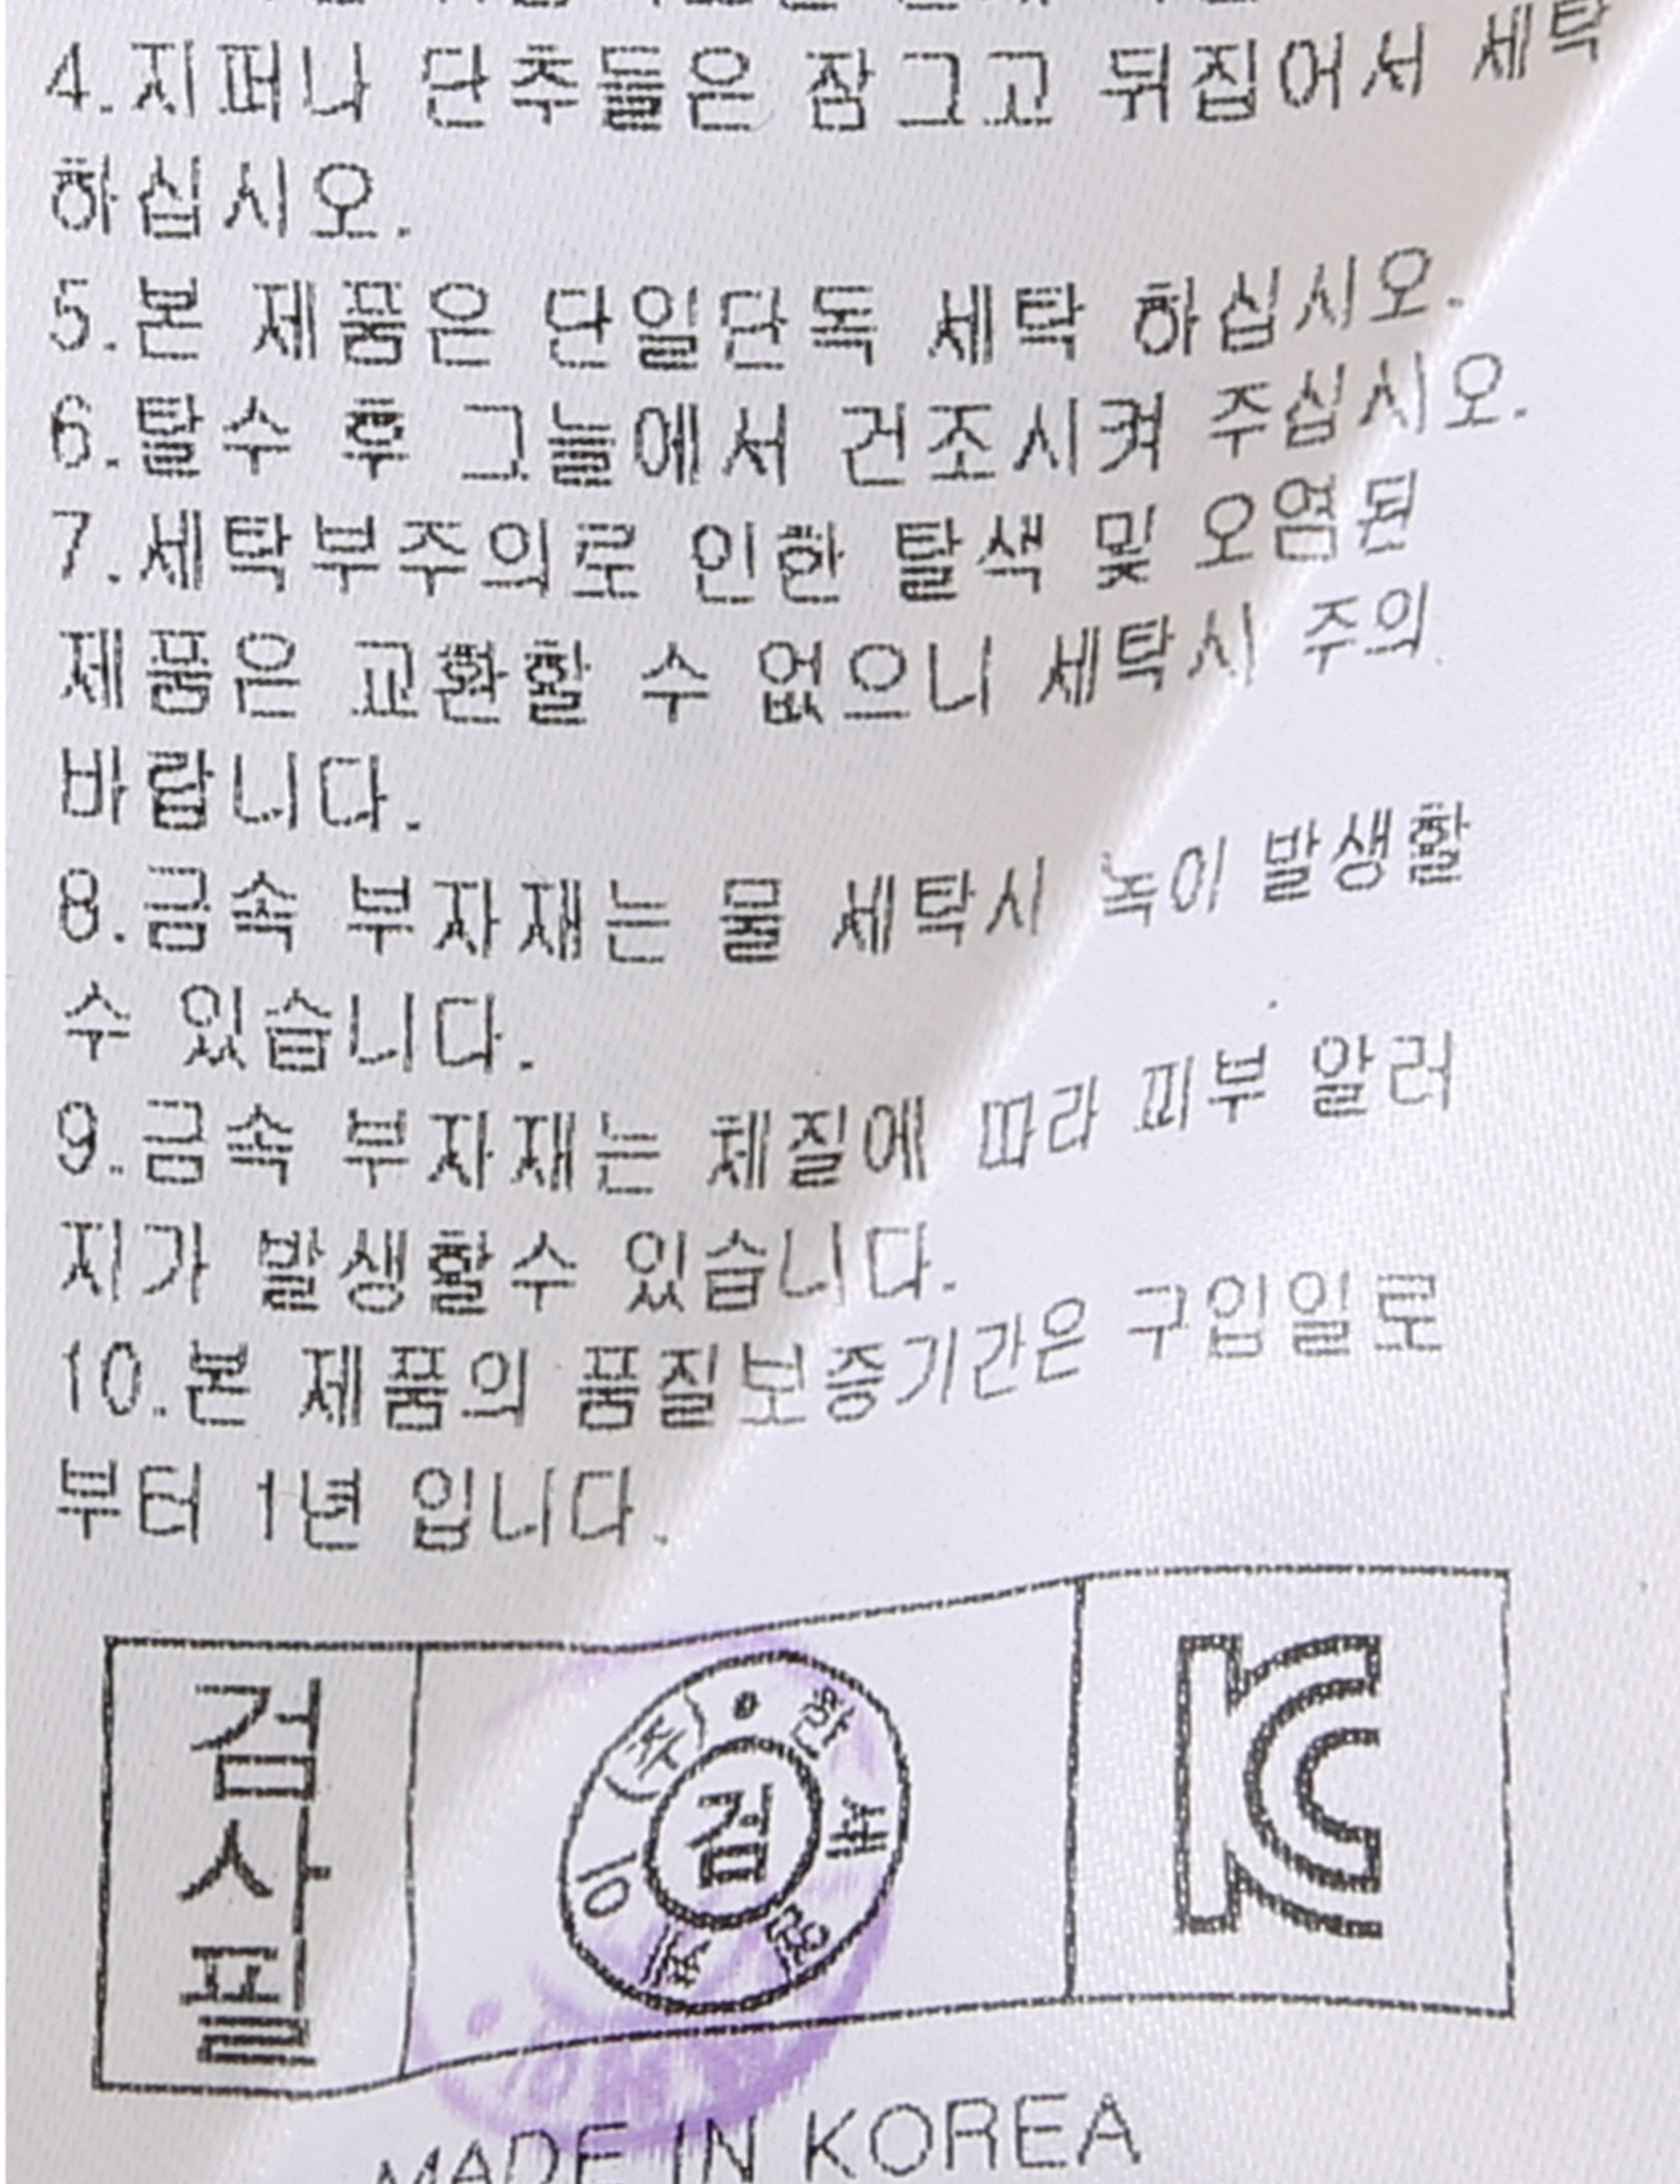 4.지퍼나 단추들은 잠그고 뒤집어서 세탁
하십시오.
5.본 제품은 단일단독 세탁 하십시오.
6.탈수 후 그늘에서 건조시켜 주십시오.
7.세탁부주의로 인한 탈색 및 오염된
제품은 교환할 수 없으니 세탁시 주의
바랍니다.
8.금속 부자재는 물 세탁시 녹이 발생할
수 있습니다.
9.금속 부자재는 체질에 따라 피부 알러
지가 발생할수 있습니다.
10.본 제품의 품질보증기간은 구입일로
부터 1년 입니다.
검사필
(주)
검
KC
MADE IN KOREA